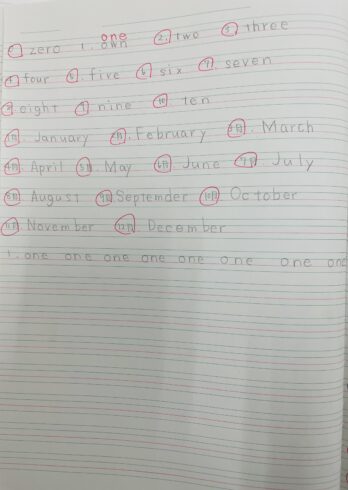 one
0 zero 1. own 2. two 3. three
4. four 5. five 6. six 7. seven
8 eight 9. nine 10. ten
1월. January 2월. February 3월. March
4월. April 5월. May 6월. June 7월. July
8월. August 9월 Septemder 10월 October
11월. November 12월. December
1. one one one one one one one one